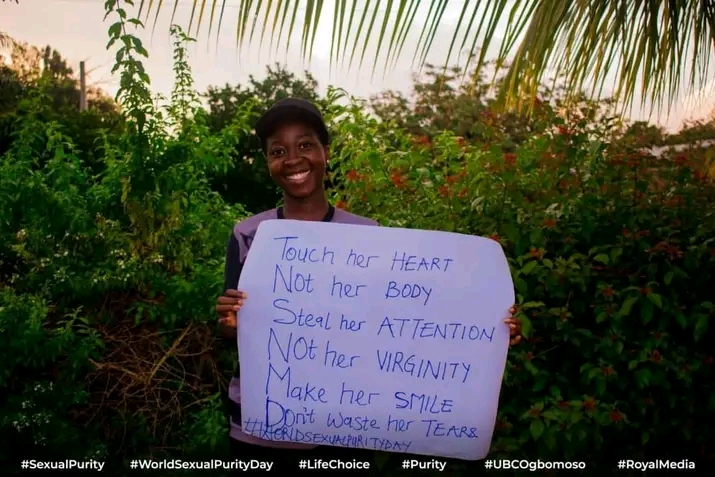 Touch her HEART
Not her BODY
Steal her ATTENTION
NOt her VIRGINITY
Make her SMILE
Don't waste her TEARS
#WORLDSEXUALPURITYDAY
#SexualPurity #WorldSexualPurityDay #LifeChoice #Purity #UBCOgbomoso #RoyalMedia